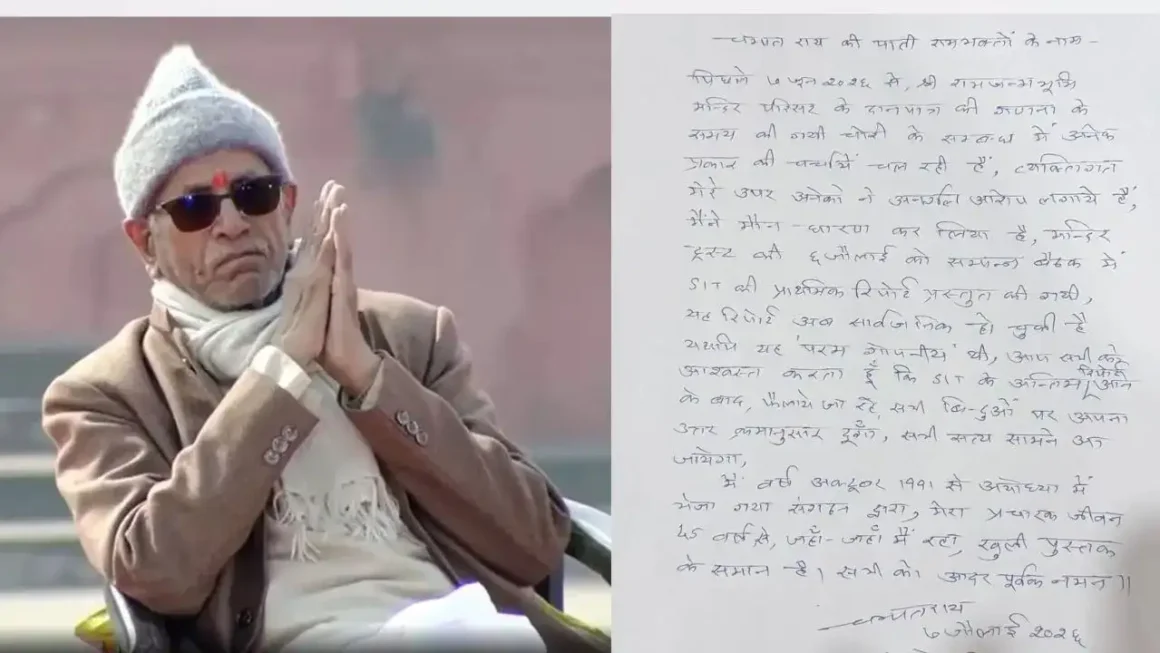 चम्पत राय की पाती रामभक्तों के नाम -
पिछले ७ जून २०२६ से, श्री रामजन्मभूमि
मन्दिर परिसर के दानपात्र की गणना के
समय की गयी चोरी के सम्बन्ध में अनेक
प्रकार की चर्चायें चल रही हैं, व्यक्तिगत
मेरे उपर अनेकों ने अनर्गल आरोप लगाये हैं,
मैंने मौन-धारण कर लिया है, मन्दिर
ट्रस्ट की ६ जौलाई को सम्पन्न बैठक में
SIT की प्राथमिक रिपोर्ट प्रस्तुत की गयी,
यह रिपोर्ट अब सार्वजनिक हो चुकी है
यद्यपि यह 'परम गोपनीय' थी, आप सभी को
आश्वस्त करता हूँ कि SIT के अन्तिम रिपोर्ट आने
के बाद, फैलाये जा रहे सभी बिन्दुओं पर अपना
उत्तर क्रमानुसार दूँगा, सभी सत्य सामने आ
जायेगा,
मैं वर्ष अक्टूबर 1991 से अयोध्या में
भेजा गया संगठन द्वारा, मेरा प्रचारक जीवन
45 वर्ष से, जहाँ-जहाँ मैं रहा, खुली पुस्तक
के समान है। सभी को आदर पूर्वक नमन।।
चम्पतराय
७ जौलाई २०२६